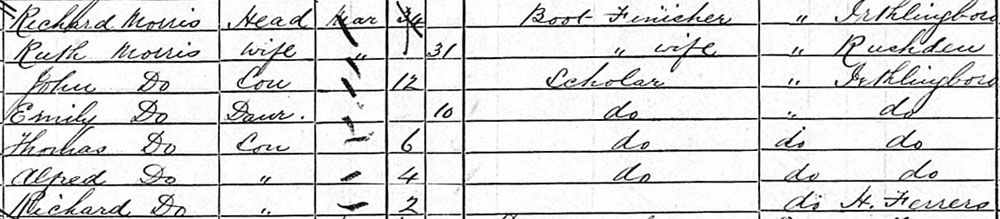 Richard Morris Head Mar 34 Boot Finisher " Irthlingboro
Ruth Morris Wife " 31 " wife " Rushden
John Do Son 12 Scholar " Irthlingboro
Emily Do Daur. 10 do " do
Thomas Do Son 6 do do do
Alfred Do " 4 do do do
Richard Do " 2 do H. Ferrers